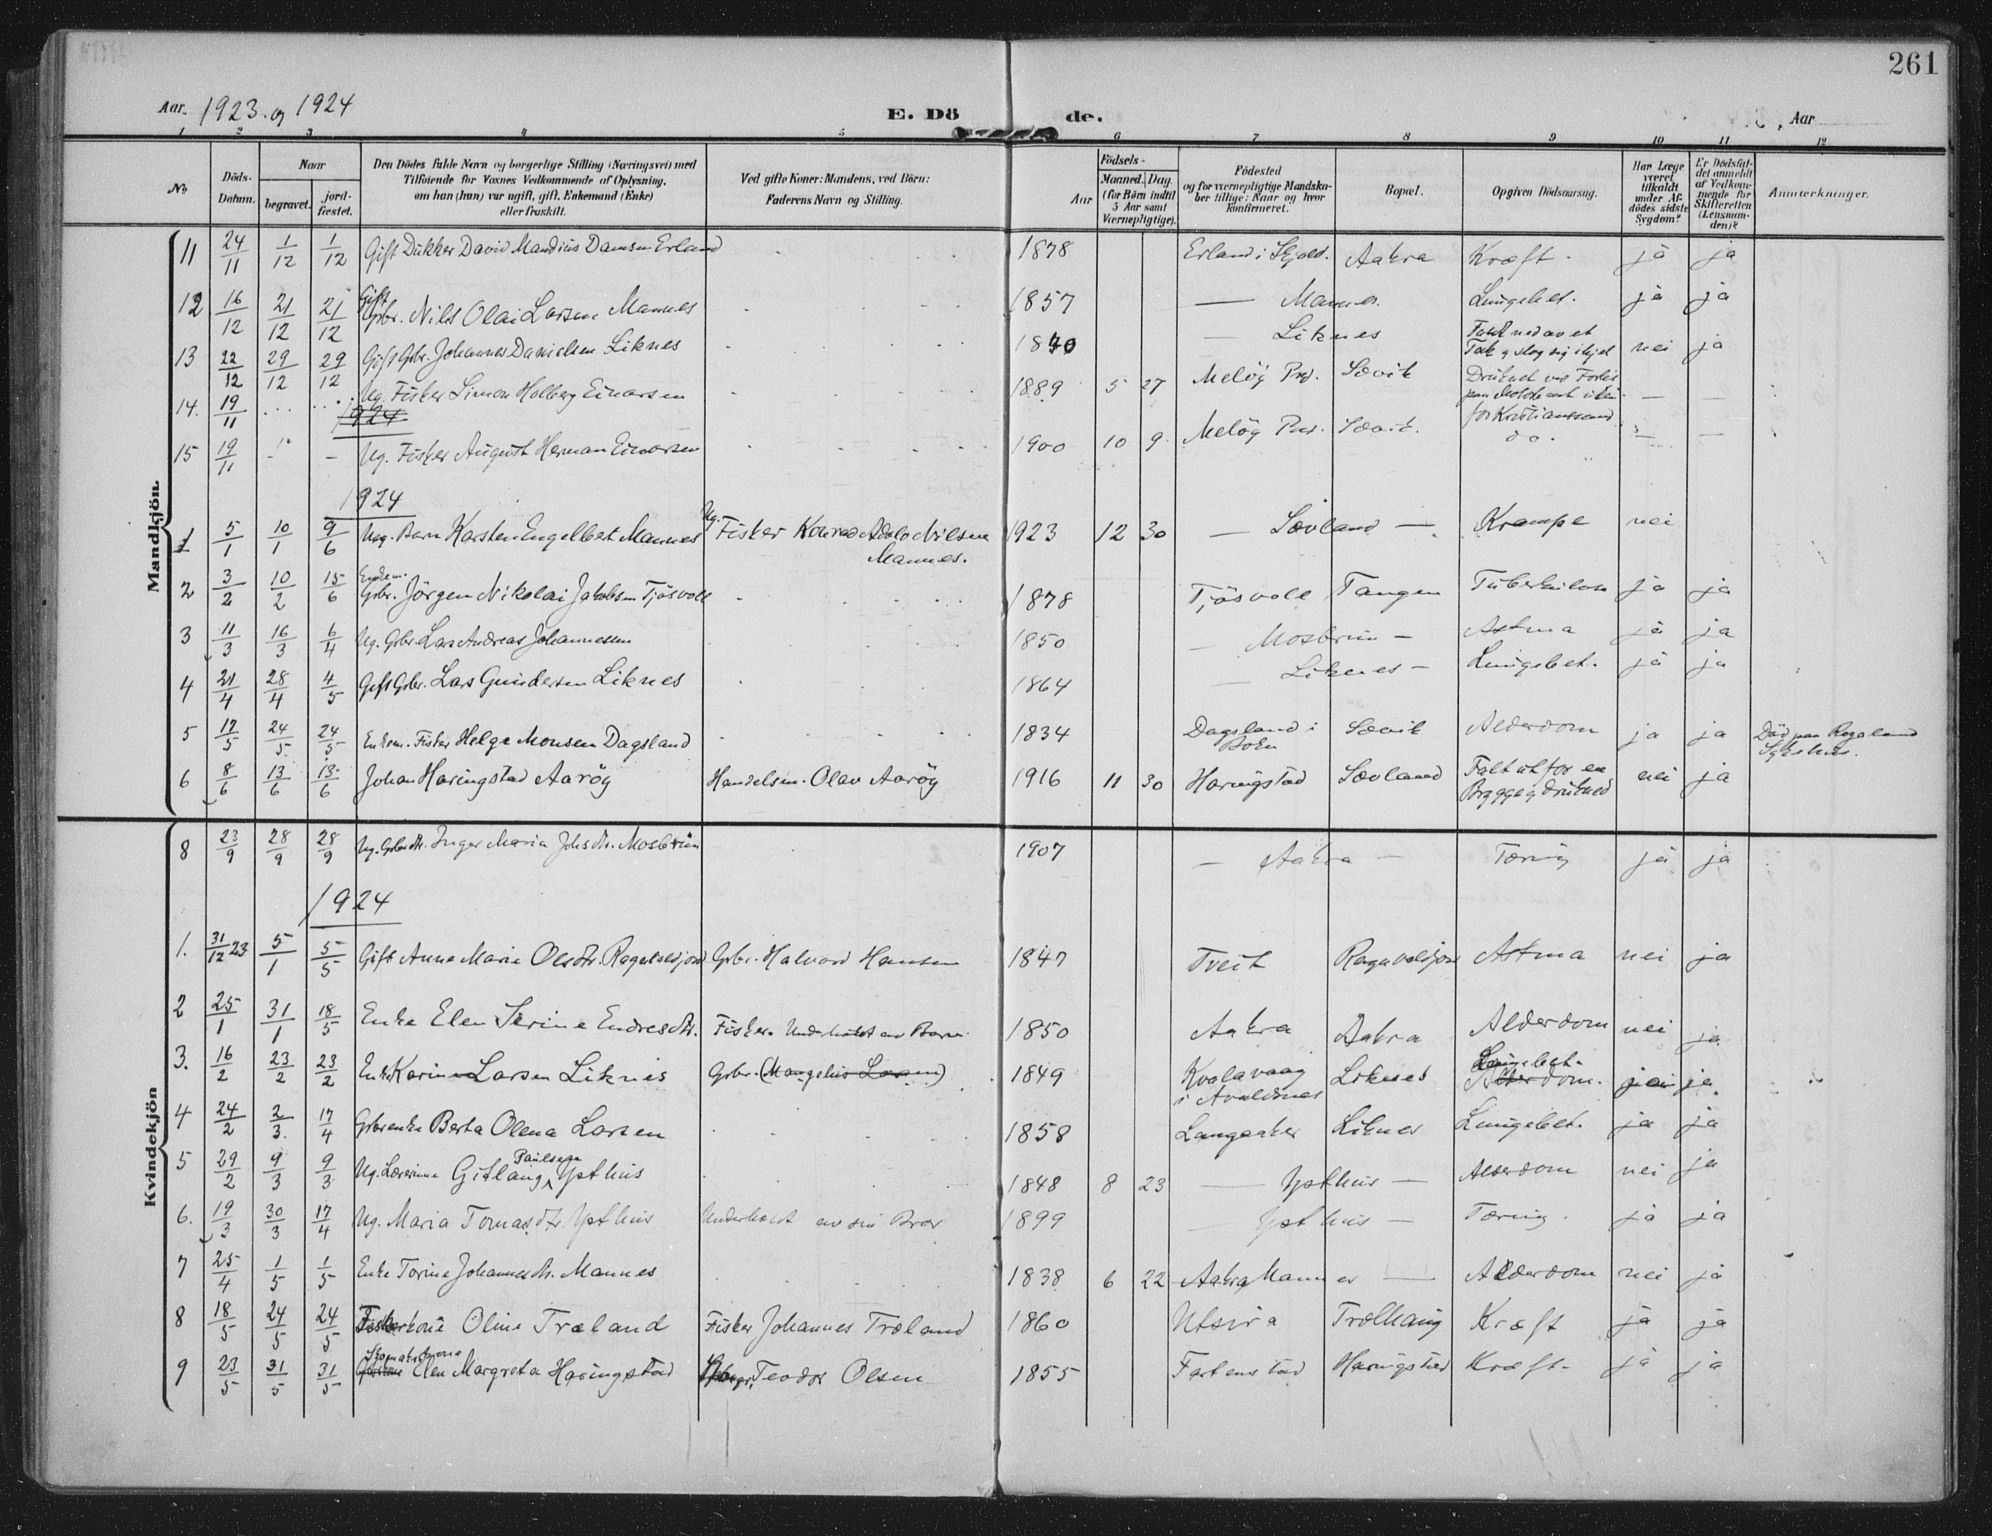 261
Aar. 1923 og 1924 E. Dö de. Aar
1 2 3 4 5 6 7 8 9 10 11 12
No Döds-Datum. Naar begravet. jord-fæstet. Den Dödes fulde Navn og borgerlige Stilling (Næringsvei) med Tilföiende for Voxnes Vedkommende af Oplysning, om han (hun) var ugift, gift, Enkemand (Enke) eller fraskilt. Ved gifte Koner: Mandens, ved Börn: Faderens Navn og Stilling. Aar Födsels- Maaned. Dag. (for Börn indtil 5 Aar samt Værnepligtige). Födested og for værnepligtige Mandskaber tillige: Naar og hvor konfirmeret. Bopæl. Opgiven Dödsaarsag. Har Læge været tilkaldt under Afdödes sidste Sygdom? Er Dödsfaldet anmeldt af Vedkommende for Skifteretten (Lensmanden)? Anmærkninger.
Mandkjön.
11 24/11 1/12 1/12 Gift Dikker David Mandius Damsen Erland 1878 Erland i Skjold. Aakra Kræft. ja ja
12 16/12 21/12 21/12 Gift Gbr. Nils Olai Larsen Mannes 1857 — Mannes. Lungebet. ja ja
13 22/12 29/12 29/12 Gift Gbr. Johannes Danielsen Liknes 1840 — Liknes Falt ned av et Tak og slog sig ihjel nei ja
14. 19/11 ... ... Ug. Fisker Simon Holberg Einarsen 1889 5 27 Melöy Prj. Sævik Druknet ved Forlis for Kristianssund — —
1924
15 19/11 - - Ug. Fisker August Herman Einarsen 1900 10 9 Melöy Prj. Sævik. do. — —
1924
1 5/1 10/1 9/6 Ug. Barn Karsten Engelbert Mannes Ug. Fisker Konrad Adolo Nilsen Mannes. 1923 12 30 — Sævland — Krampe nei
2 3/2 10/2 15/6 Enkem. Gbr. Jörgen Nikolai Jakobsen Tjösvoll 1878 Tjösvoll Tangen Tuberkulose ja ja
3 11/3 16/3 6/4 Ug. Gbr. Lars Andreas Johannessen 1850 — Mosbrun — Astma ja ja
4 21/4 28/4 4/5 Gift Gbr. Lars Gundersen Liknes 1864 — Liknes — Lungebet. ja ja
5 17/5 24/5 24/5 Enkem. Fisker Helge Monsen Dagsland 1834 Dagsland i Bokn Sævik Alderdom ja ja Död paa Rogaland Sykehus.
6 8/6 13/6 13/6 Johan Haringstad Aaröy Handelsm. Olav Aaröy 1916 11 30 Haringstad Sævland Falt ut for en Brygge og drukned nei ja
Kvindekjön
8 23/9 28/9 28/9 Ug. Gbrdtr. Inger Maria Johsdtr. Mosbrun 1907 — Aakra — Tæring ja ja
1924
1. 31/12 23 5/1 5/5 Gift Anne Marie Olsdtr. Ragnvaldsjord Gbr. Halvard Hansen 1847 Tveit Ragnvaldsjord Astma nei ja
2 25/1 31/1 18/5 Enke Elen Serine Endresdtr. Fisker. Underholdt av Barn. 1850 Aakra Aakra Alderdom nei ja
3. 16/2 23/2 23/2 Enke Karine Larsen Liknes Gbr. (Mangelius Larsen) 1849 Kvalavaag i Avaldsnes Liknes Lungebet. Alderdom. ja ja.
4 24/2 2/3. 17/4 Gbrenke Berta Olena Larsen 1858 Langaaker Liknes Lungebet. ja ja
5 29/2 9/3 9/3 Ug. Lærerinne Gitlaug Paulsen Ysthus 1848 8 23 — Ysthus — Alderdom nei ja
6. 19/3 30/3 17/4 Ug. Maria Tomasdtr. Ysthus Underholdt av sin Bror 1899 — Ysthus — Tæring. ja ja
7 25/4 1/5 1/5 Enke Torine Johannesdtr. Mannes 1838 6 22 Aakra Mannes — Alderdom nei ja
8 18/5 24/5 24/5 Fiskerkone Oline Træland Fisker Johannes Træland 1860 Utsira Trælhaug Kræft ja ja
9 23/5 31/5 31/5 Skomakerkone Elen Margreta Haringstad Teodor Olsen 1855 Fartenstad Haringstad Kræft- ja ja